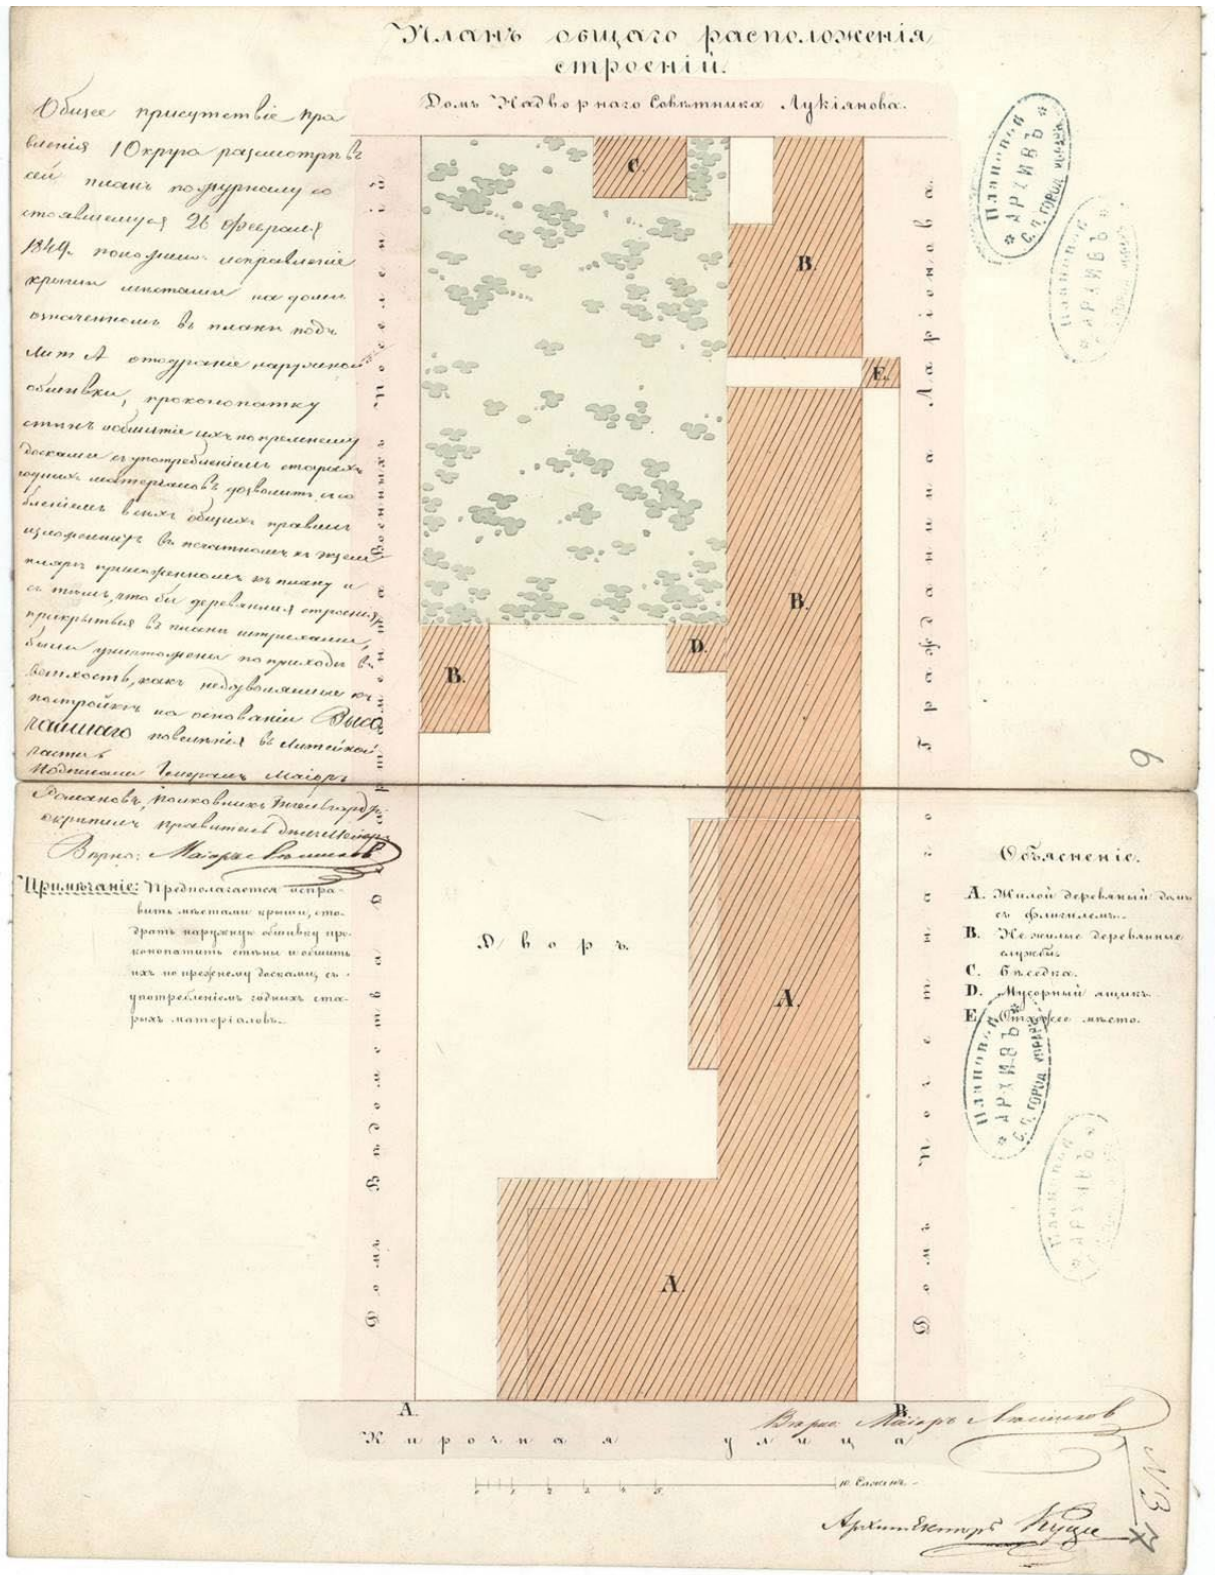 Планъ общаго расположенія
строеній.
Домъ Надворнаго Совѣтника Лукіянова.
Общее присутствіе пра
вленія 1 Округа разсмотрѣвъ
сей планъ по журналу со
стоявшемуся 26 февраля
1849. положило: исправленіе
крыши мѣстами на домѣ
означенномъ въ планѣ подъ
Лит А отодраніе наружной
обшивки, проконопатку
стѣнъ и обшитіе ихъ по прежнему
досками съ употребленіемъ старыхъ
годныхъ матеріаловъ дозволить съ со
блюденіемъ всѣхъ общихъ правилъ
изложенныхъ въ печатномъ экзем
плярѣ приложенномъ къ плану и
съ тѣмъ, что бы деревянныя строенія,
прикрытыя въ планѣ штрихами,
были уничтожены по приходѣ въ
ветхость, какъ недозволенные къ
постройкѣ на основаніи Высо
чайшаго повелѣнія въ Литейной
части
Подписали Генералъ Маіоръ
Романовъ, полковникъ
скрѣпилъ правитель дѣлъ
Вѣрно: Маіоръ
Примѣчаніе: Предполагается испра-
вить мѣстами крыши, ото-
драть наружную обшивку про
конопатить стѣны и обшить
ихъ по прежнему досками, съ
употребленіемъ годныхъ ста-
рыхъ матеріаловъ.
Домъ Вѣдомства Военныхъ Поселеній
Домъ Почетнаго Гражданина Ларіонова.
C.
B.
E.
B.
D.
B.
Дворъ.
A.
A.
Объясненіе.
A. Жилой деревяный домъ
съ флигилемъ.
B. Не жилые деревянные
службы.
C. Бѣседка.
D. Мусорный ящикъ.
E. Отхожее мѣсто.
Плановой
АРХИВЪ
С. П. ГОРОД. УПРАВЫ
Плановой
АРХИВЪ
Плановой
АРХИВЪ
С. П. ГОРОД. УПРАВЫ
Плановой
АРХИВЪ
6
A.
B.
Вѣрно: Маіоръ
Кирочная улица
10 Сажень.
Архитекторъ
N 3